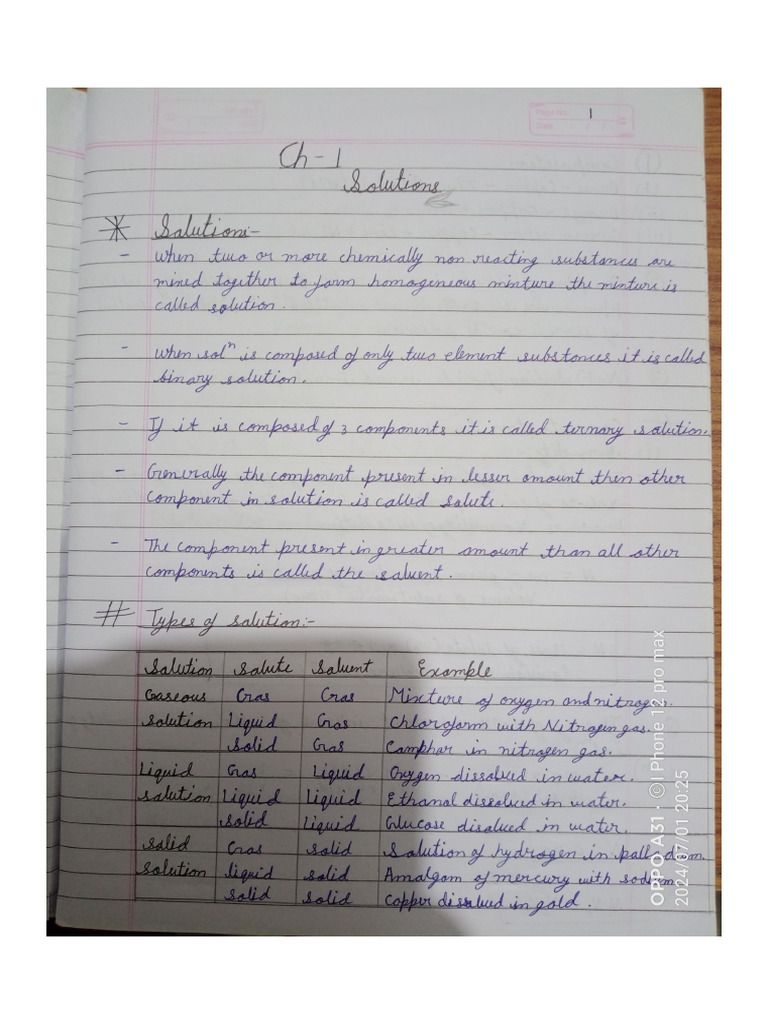 Page No. 1
Date
Ch-1
Solutions
* Solution:-
- When two or more chemically non reacting substances are
mixed together to form homogeneous mixture the mixture is
called solution.
- When solⁿ is composed of only two element substances it is called
binary solution.
- If it is composed of 3 components it is called ternary solution.
- Generally the component present in lesser amount then other
component in solution is called solute.
- The component present in greater amount than all other
components is called the solvent.
# Types of solution:-
Solution Solute Solvent Example
Gaseous Gas Gas Mixture of oxygen and nitrogen.
solution Liquid Gas Chloroform with Nitrogen gas.
solid Gas Camphor in nitrogen gas.
Liquid Gas Liquid Oxygen dissolved in water.
solution Liquid Liquid Ethanol dissolved in water.
solid Liquid Glucose disolved in water.
solid Gas solid Solution of hydrogen in palladium.
solution liquid solid Amalgam of mercury with sodium.
solid solid Copper dissolved in gold.
OPPO A31 · ©I Phone 12 pro max
2024/07/01 20:25